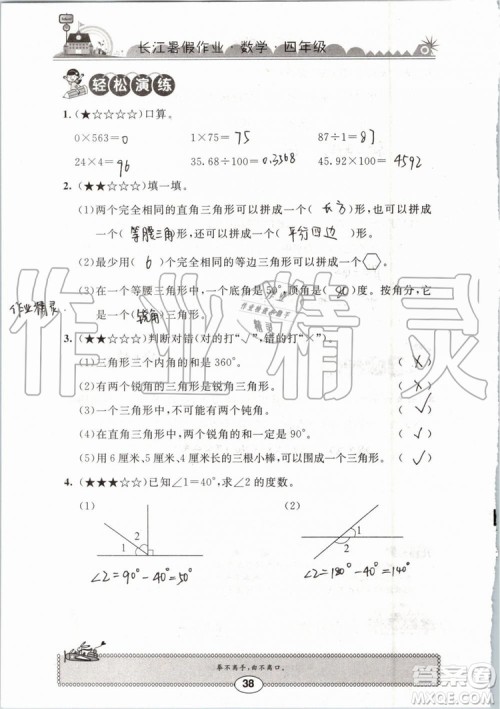 长江暑假作业·数学·四年级
轻松演练
1.(★☆☆☆☆)口算。
0×563=0 1×75=75 87÷1=87
24×4=96 35.68÷100=0.3568 45.92×100=4592
2.(★★☆☆☆)填一填。
(1)两个完全相同的直角三角形可以拼成一个(长方)形,也可以拼成
一个(等腰三角)形,还可以拼成一个(平行四边)形。
(2)最少用(6)个完全相同的等边三角形可以拼成一个。
(3)在一个等腰三角形中,一个底角是50°,顶角是(80)度。按角分,它
是一个(锐角)三角形。
3.(★★☆☆☆)判断对错(对的打“√”,错的打“×”)。
(1)三角形三个内角的和是360°。(×)
(2)有两个锐角的三角形是锐角三角形。(×)
(3)一个三角形中,不可能有两个钝角。(√)
(4)在直角三角形中,两个锐角的和一定是90°。(√)
(5)用6厘米、5厘米、4厘米长的三根小棒,可以围成一个三角形。(√)
4.(★★★☆☆)已知∠1=40°,求∠2的度数。
(1) (2)
2 1
1 2
∠2=90°-40°=50° ∠2=180°-40°=140°
拳不离手,曲不离口。
38
作业精灵
作业精灵
答案圈